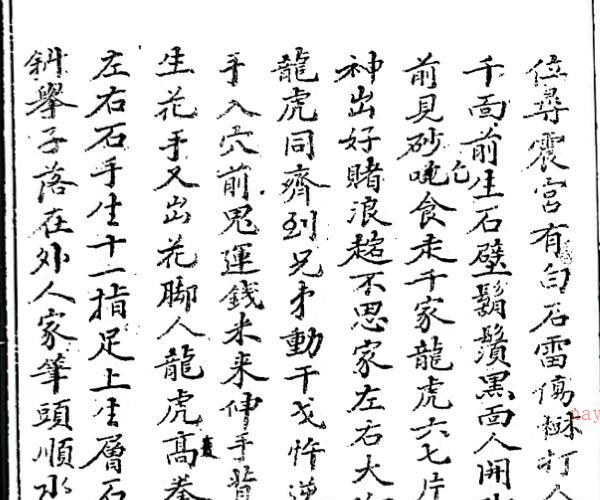 位尋震宮有白石雷傷打人
千面前生石壁鬍鬚黑面人開
前見砂吃食走千家龍虎六七片
神出好賭浪趒不思家左右大
龍虎同齊到兄才動干戈忤逆
手入穴前鬼運錢米来伸手背
生花手又出花脚人龍虎高拳
左右石手生十一指足上生層石
斜舉子落在外人家筆頭順水
nay